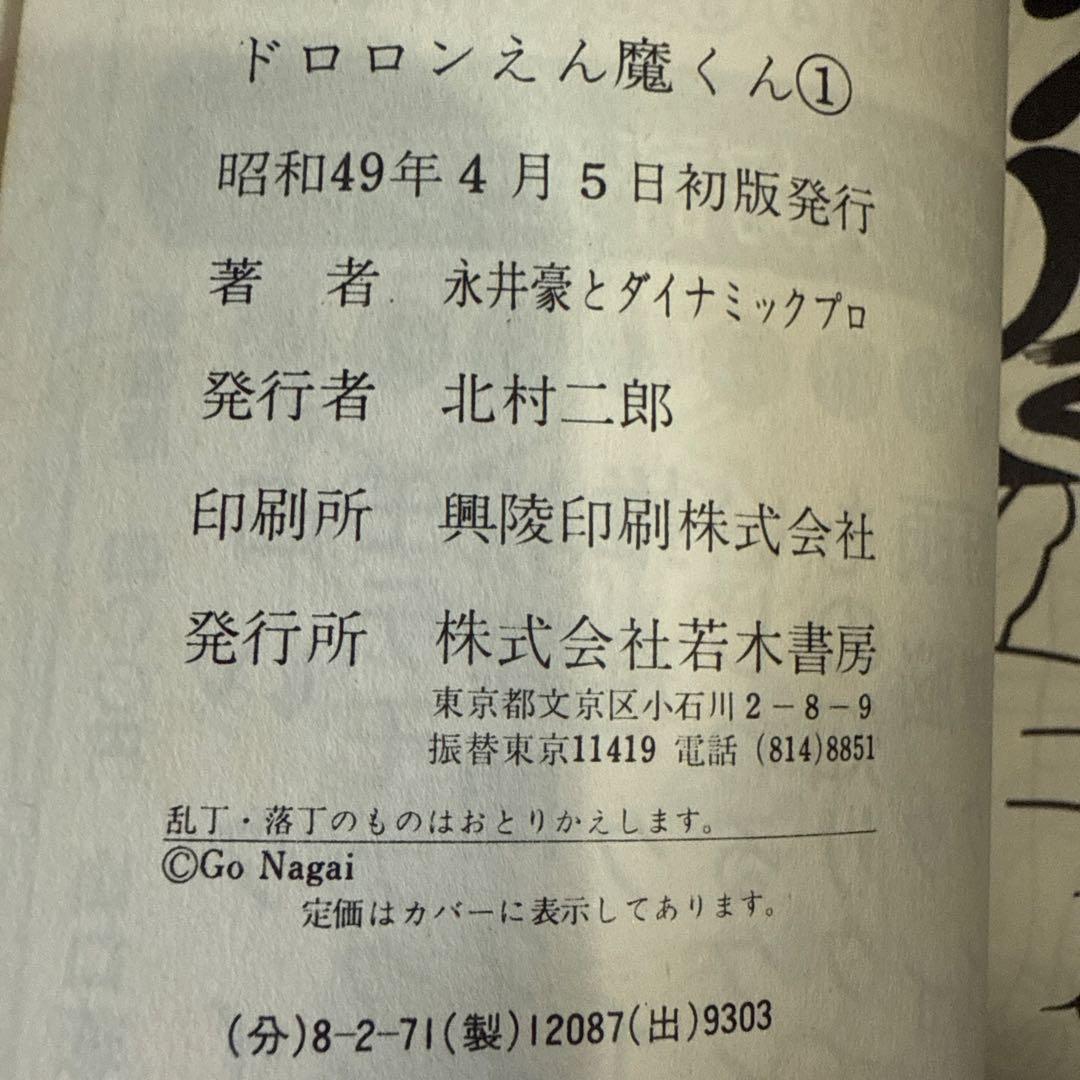 ドロロンえん魔くん①
昭和49年4月5日初版発行
著 者 永井豪とダイナミックプロ
発行者 北村二郎
印刷所 興陵印刷株式会社
発行所 株式会社若木書房
東京都文京区小石川2-8-9
振替東京11419 電話 (814)8851
乱丁・落丁のものはおとりかえします。
©Go Nagai
定価はカバーに表示してあります。
(分)8-2-71(製)12087(出)9303